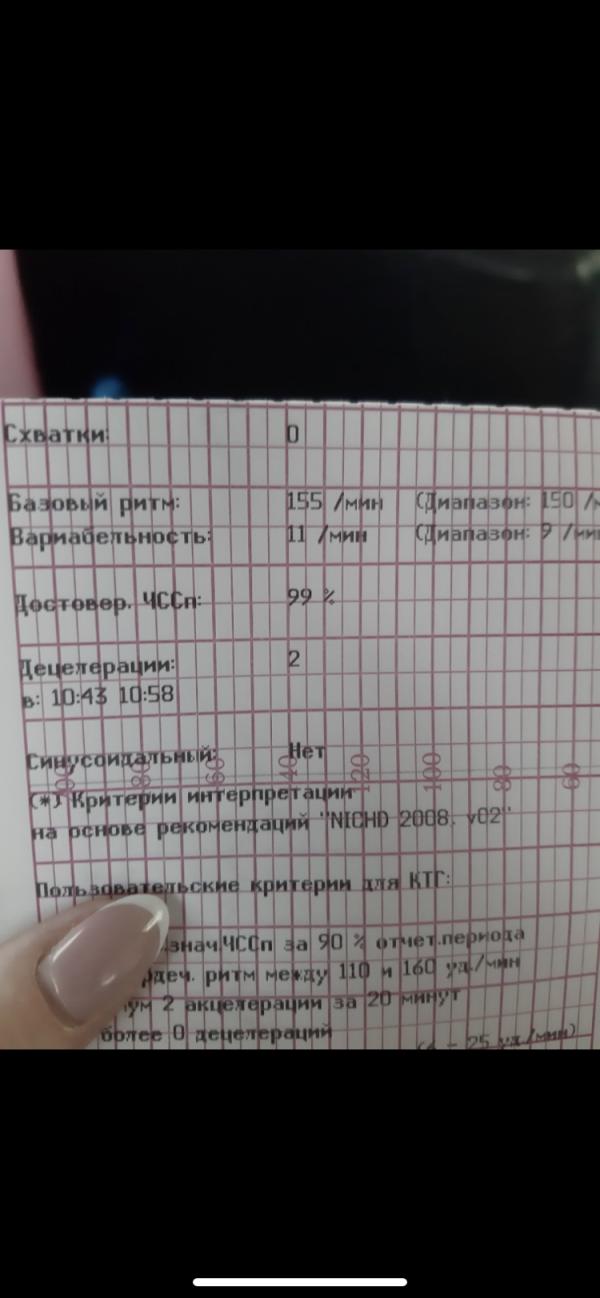 Схватки: 0
Базовый ритм: 155 /мин (Диапазон: 150
Вариабельность: 11 /мин (Диапазон: 9 /мин
Достовер. ЧССп: 99 %
Децелерации: 2
в: 10:43 10:58
Синусоидальный: Нет
80 60 40 120 100 80 60
(*) Критерии интерпретации
на основе рекомендаций "NICHD 2008. v02"
Пользовательские критерии для КТГ:
знач.ЧССп за 90 % отчет.периода
ритм между 110 и 160 уд./мин
2 акцелерации за 20 минут
более 0 децелераций
25 уд/мин)